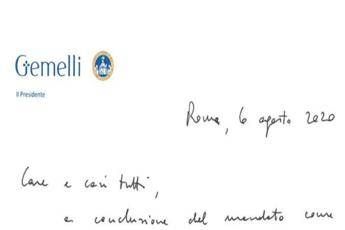 Gemelli
Il Presidente
Roma, 6 agosto 2020
Care e cari tutti,
a conclusione del mandato come